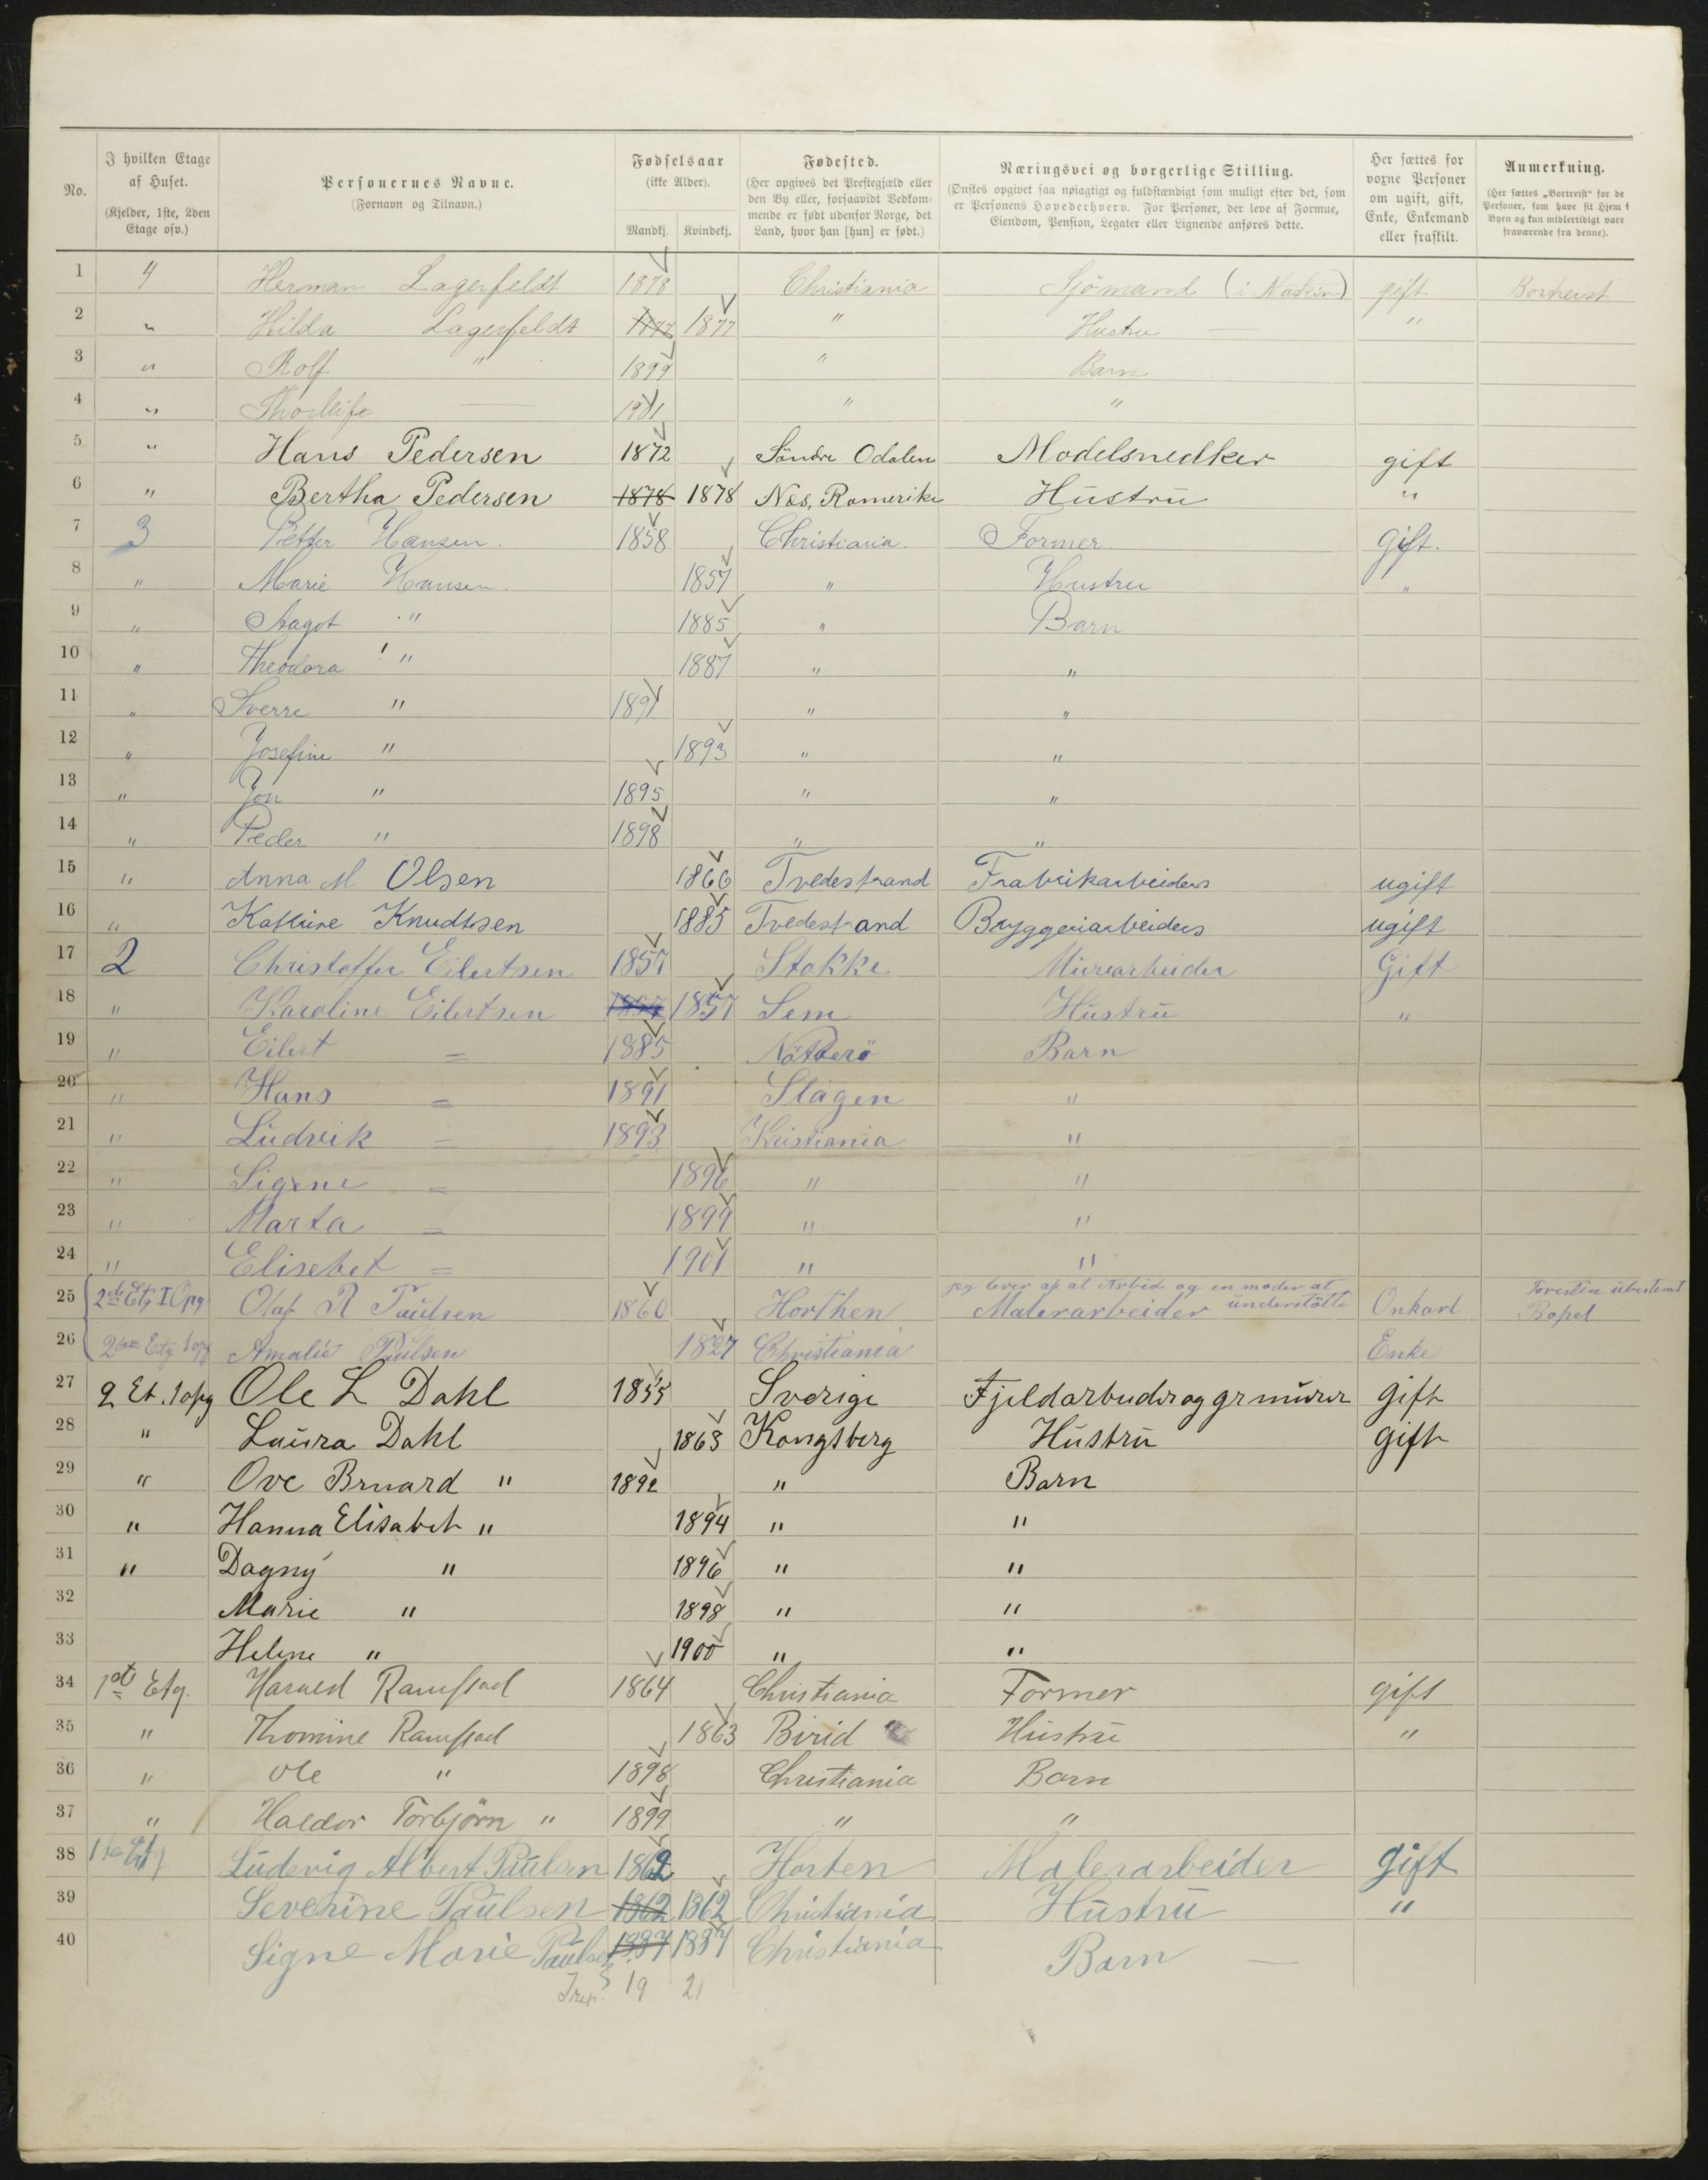 No. | I hvilken Etage af Huset. (Kjelder, 1ste, 2den Etage osv.) | Personernes Navne. (Fornavn og Tilnavn.) | Fødselsaar (ikke Alder). Mandkj. Kvindekj. | Fødested. (Her opgives det Prestegjæld eller den By eller, forsaavidt Vedkommende er født udenfor Norge, det Land, hvor han [hun] er født.) | Næringsvei og borgerlige Stilling. (Ønskes opgivet saa nøiagtigt og fuldstændigt som muligt efter det, som er Personens Hovederhverv. For Personer, der leve af Formue, Eiendom, Pension, Legater eller Lignende anføres dette.) | Her sættes for voxne Personer om ugift, gift, Enke, Enkemand eller fraskilt. | Anmerkning. (Her sættes „Bortreist“ for de Personer, som have sit Hjem i Byen og kun midlertidigt være fraværende fra denne).
1 4 Herman Lagerfeldt 1878 Christiania Sjömand gift Bortreist
2 " Hilda Lagerfeldt 1877 1877 " Hustru "
3 " Rolf " 1899 " Barn
4 " Thorleif 1901 " "
5 " Hans Pedersen 1872 Söndre Odalen Modelsnedker gift
6 " Bertha Pedersen 1878 1878 Nes, Romerike Hustru "
7 3 Petter Hansen. 1858 Christiania. Former. Gift.
8 " Marie Hansen. 1857 " Hustru "
9 " Aagot " 1885 " Barn
10 " Theodora " 1887 " "
11 " Sverre " 1891 " "
12 " Josefine " 1893 " "
13 " Jon " 1895 " "
14 " Peder " 1898 " "
15 " Anna M Olsen 1866 Tvedestrand Frabrikarbeiders ugift
16 " Katrine Knudtsen 1885 Tvedestrand Bryggeriarbeiders ugift
17 2 Christoffer Eilertsen 1857 Stokke Murearbeider Gift
18 " Karoline Eilertsen 1857 1857 Sem Hustru "
19 " Eilert = 1885 Nötterö Barn
20 " Hans = 1891 Slagen "
21 " Ludvik = 1893 Kristiania "
22 " Signe = 1896 " "
23 " Marta = 1899 " "
24 " Elisebet = 1901 " "
25 2de Etg I Opg Olaf R Paulsen 1860 Horthen jeg lever af at Arbeide og en moder at understötte Malerarbeider Onkarl Bopel
26 2den Etg 1 opg Amalie Paulsen 1827 Christiania Enke
27 2 Et. 1 opg Ole L Dahl 1855 Sverige Fjeldarbuder og grmurer gift
28 " Laura Dahl 1863 Kongsberg Hustru gift
29 " Ove Brnard " 1892 " Barn
30 " Hanna Elisabet " 1894 " "
31 " Dagny " 1896 " "
32 Marie " 1898 " "
33 Helene " 1900 " "
34 1ste Etg. Harald Ramstad 1864 Christiania Former gift
35 " Thomine Ramstad 1863 Birid Hustru "
36 " Ole " 1898 Christiania Barn
37 " Haldor Torbjörn " 1899 " "
38 1ste Etg Ludevig Albert Paulsen 1862 Horten Malerarbeider gift
39 Severine Paulsen 1862 1862 Christiania Hustru "
40 Signe Marie Paulsen 1887 1887 Christiania Barn
19 21